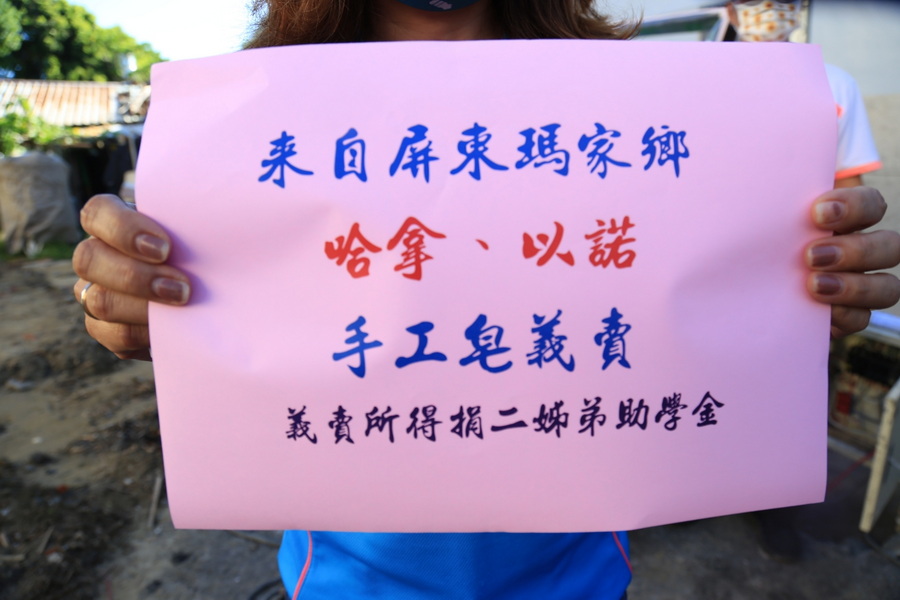 来自屏東瑪家鄉
哈拿、以諾
手工皂義賣
義賣所得捐二姊弟助學金